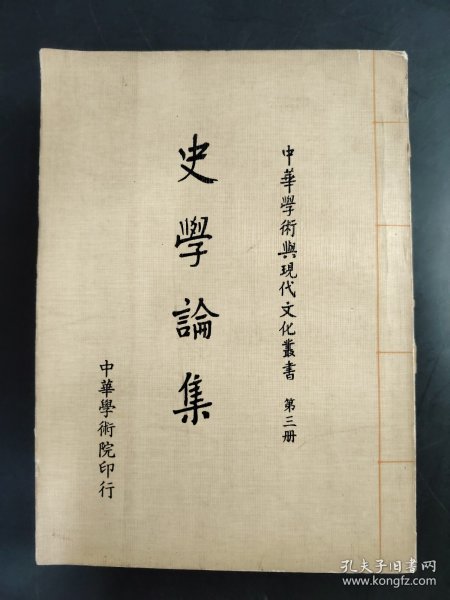 中華學術與現代文化叢書 第三册
史學論集
中華學術院印行
孔夫子旧书网
www.kongfz.com